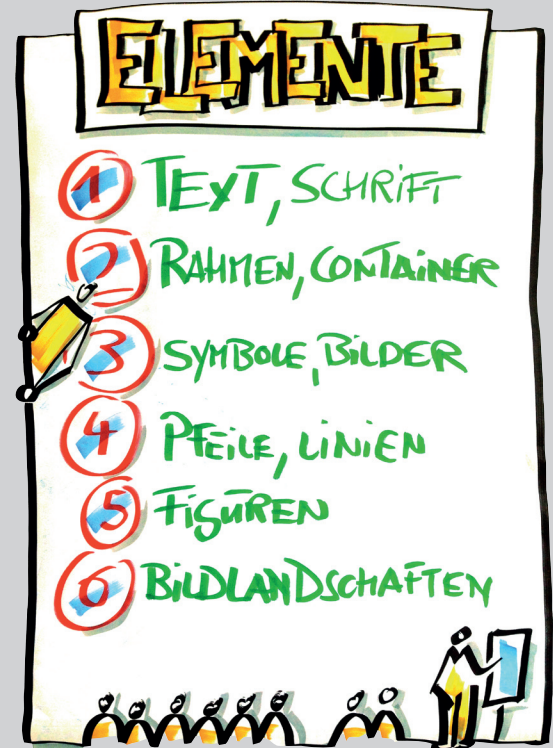 ELEMENTE
1 TEXT, SCHRIFT
2 RAHMEN, CONTAINER
3 SYMBOLE, BILDER
4 PFEILE, LINIEN
5 FIGUREN
6 BILDLANDSCHAFTEN